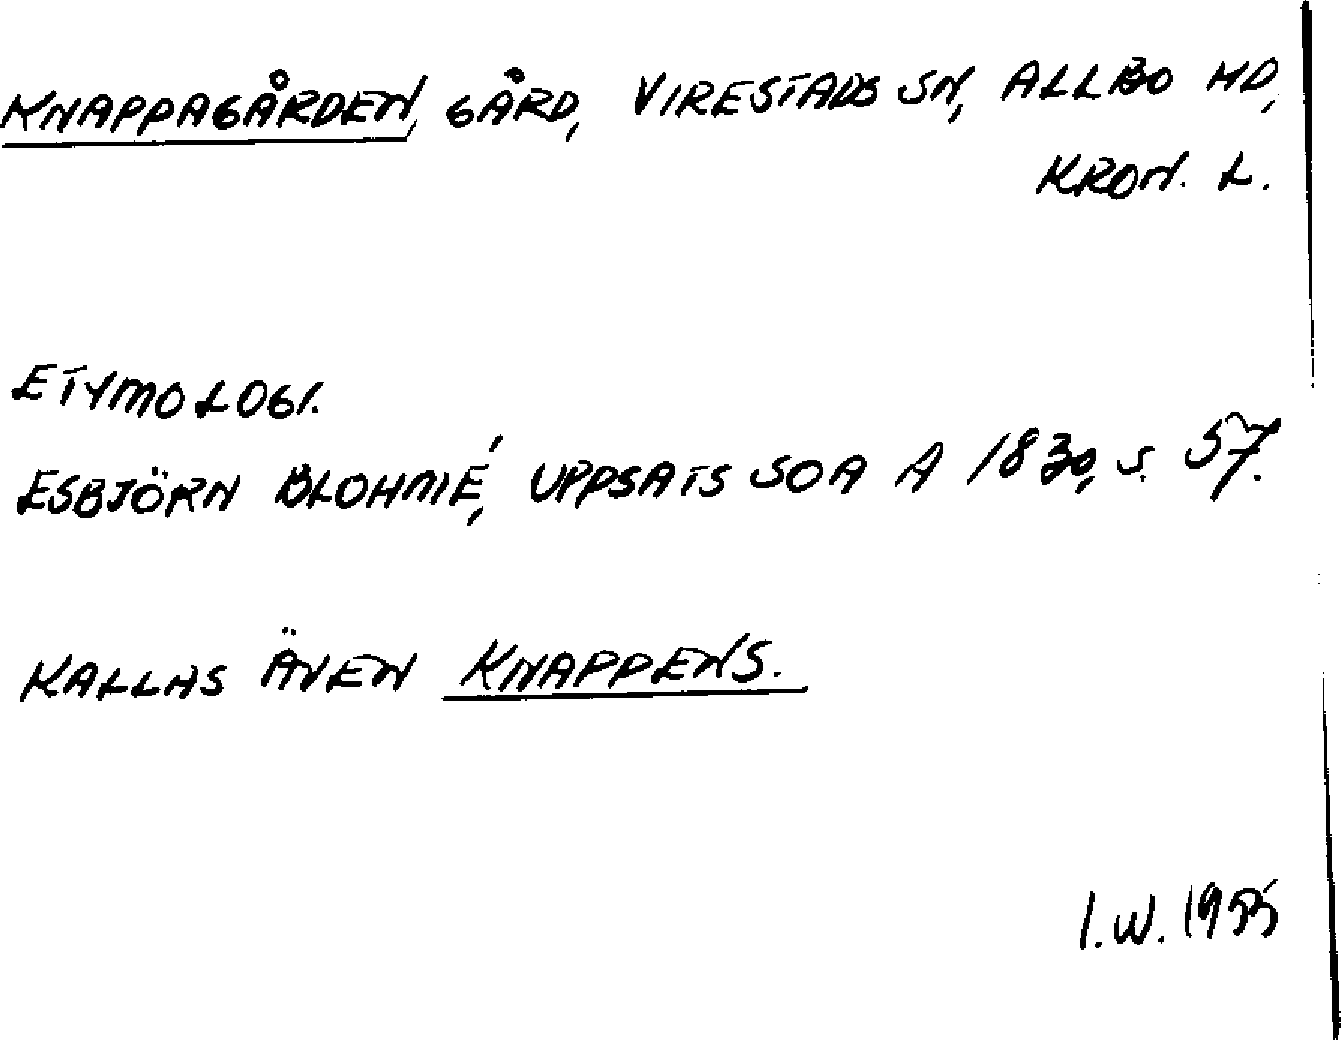 KNAPPAGÅRDEN, GÅRD, VIRESTADS SN, ALLBO HD,
KRON. L.
ETYMOLOGI.
ESBJÖRN BLOHMÉ, UPPSATS SOA A 1830, S. 57.
KALLAS ÄVEN KNAPPENS.
I.W. 1955